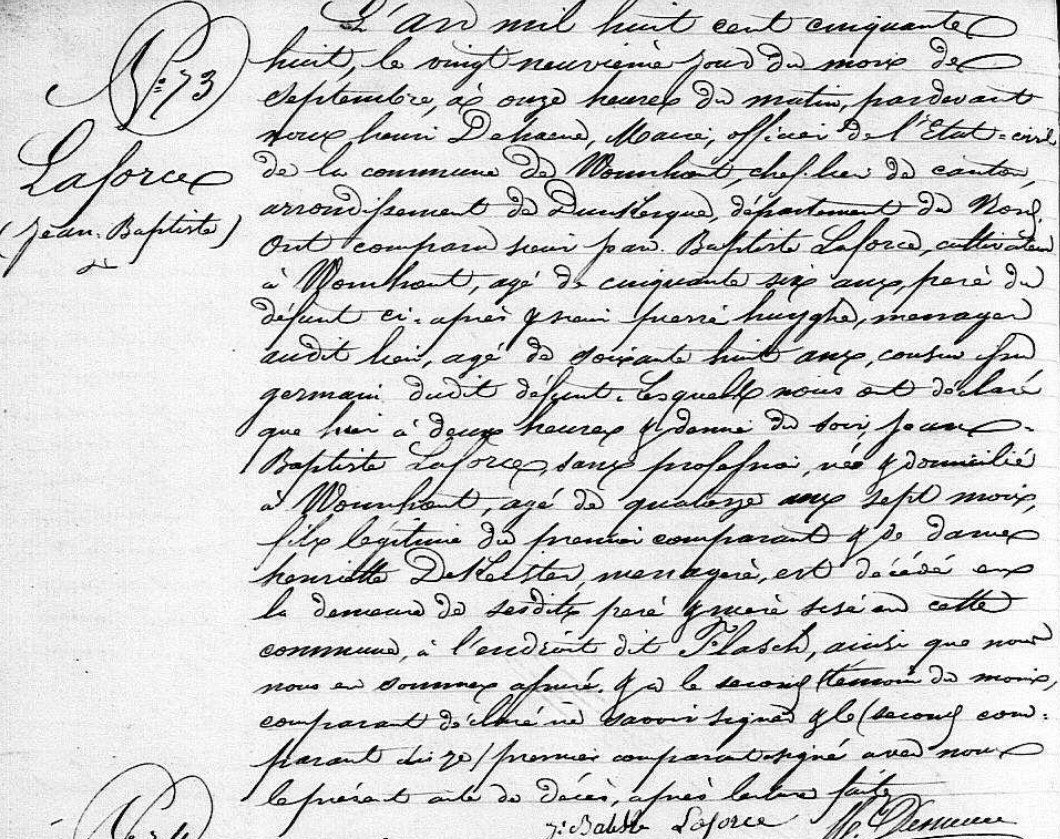 N° 73
Laforce
(Jean-Baptiste)
L'an mil huit cent cinquante
huit, le vingt neuvième jour du mois de
Septembre, à onze heures du matin, pardevant
nous henri Dehaene, Maire, officier de l'Etat-civil
de la commune de Wormhout, chef-lieu de canton,
arrondissement de Dunkerque, département du Nord,
Ont comparu sieur Jean Baptiste Laforce, cultivateur
à Wormhout, agé de cinquante six ans, pere du
défunt ci-après & sieur pierre huyghe, menager
audit lieu, agé de soixante huit ans, cousin
germain dudit défunt. Lesquels nous ont déclaré
que hier à deux heures & demie du soir, Jean-
Baptiste Laforce, sans profession, née & domicilié
à Wormhout, agé de quatorze ans sept mois,
fils légitime du premier comparant & de dame
henriette DeKeister, menagere, est décédé en
la demeure de sesdits pere & mere sise en cette
commune, à l'endroit dit Flasch, ainsi que nous
nous en sommes assuré. & a le second témoin du moins,
comparant déclaré ne savoir signer & le (second com-
parant dise) premier comparant signé avec nous
le présent acte de décès, après lecture faite
J: Batiste Laforce